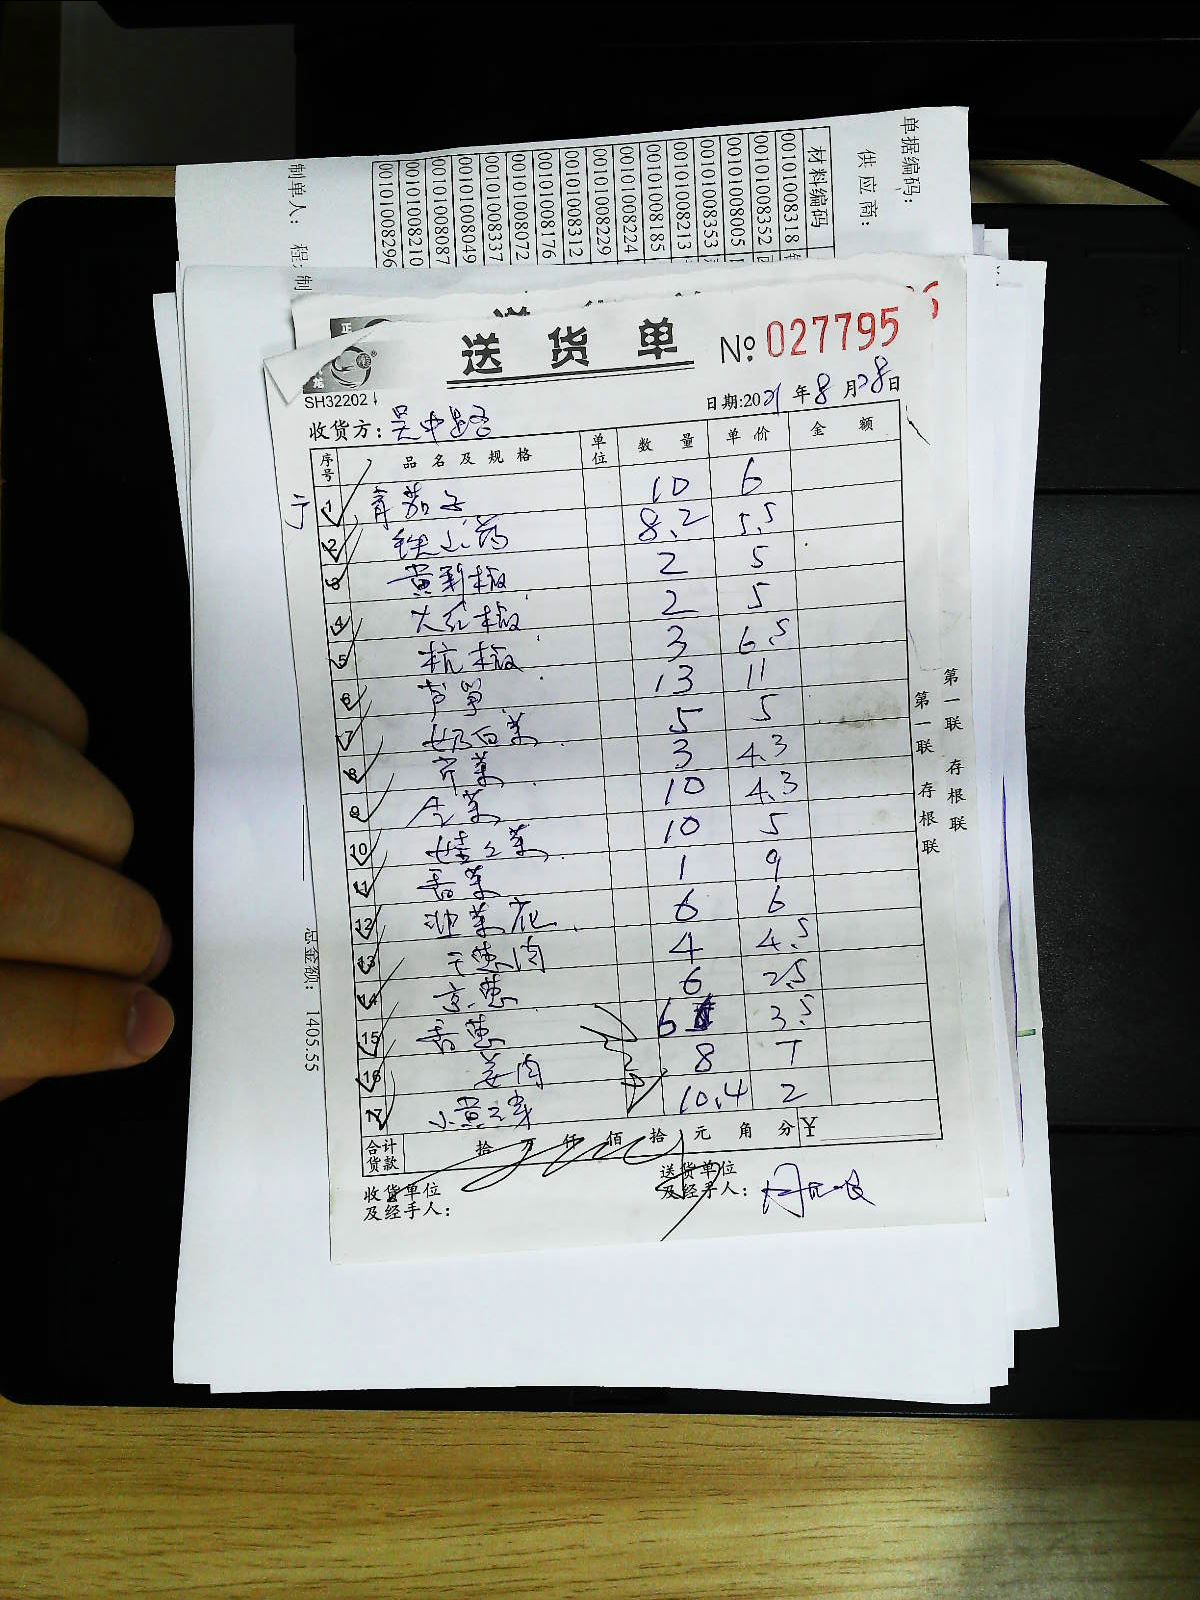 单据编码：
供应商：
材料编码
00101008318
00101008352
00101008005
00101008353
00101008213
00101008185
00101008224
00101008229
00101008312
00101008176
00101008072
00101008337
00101008049
00101008087
00101008210
00101008296
制单人：
总金额： 1405.55
送货单 No 027795
SH32202
日期:2021年8月28日
收货方：吴中路
序号 品名及规格 单位 数量 单价 金额
1 青茄子 10 6
2 铁山药 8.2 5.5
3 黄彩椒 2 5
4 大红椒 2 5
5 杭椒 3 6.5
6 芦笋 13 11
7 奶白菜 5 5
8 芹菜 3 4.3
9 生菜 10 4.3
10 娃娃菜 10 5
11 香菜 1 9
12 油菜花 6 6
13 干葱肉 4 4.5
14 京葱 6 2.5
15 香葱 6 3.5
16 姜肉 8 7
17 小黄豆芽 10.4 2
合计货款 拾 万 仟 佰 拾 元 角 分 ¥
收货单位及经手人：
送货单位及经手人：
第一联 存根联
第一联 存根联